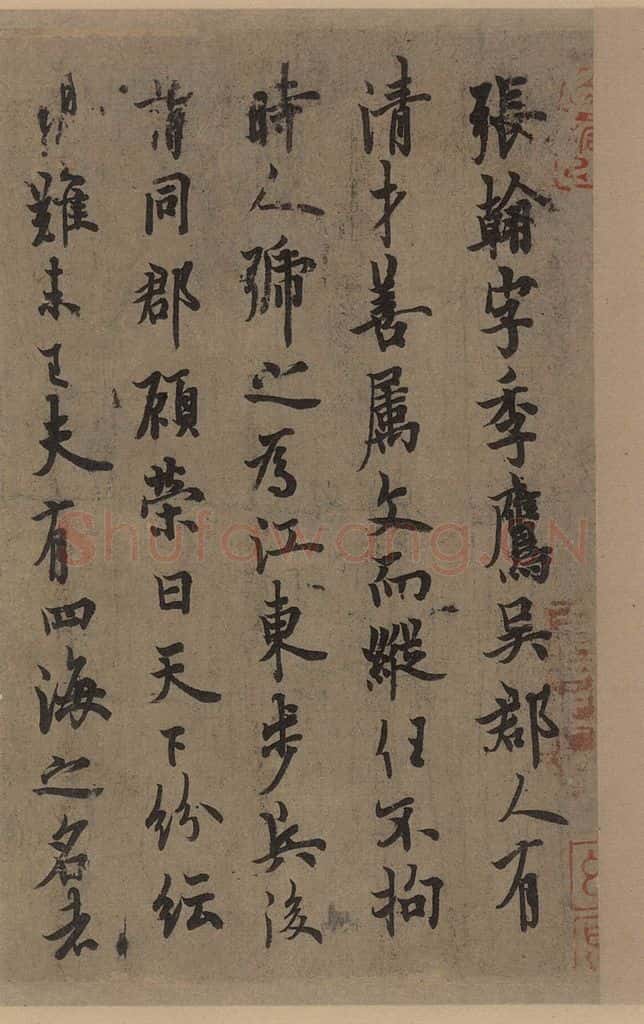 張翰字季鷹吳郡人有
清才善属文而縱任不拘
時人號之為江東步兵後
同郡顧榮曰天下紛紜
難未夫有四海之名者
Shufawang.CN